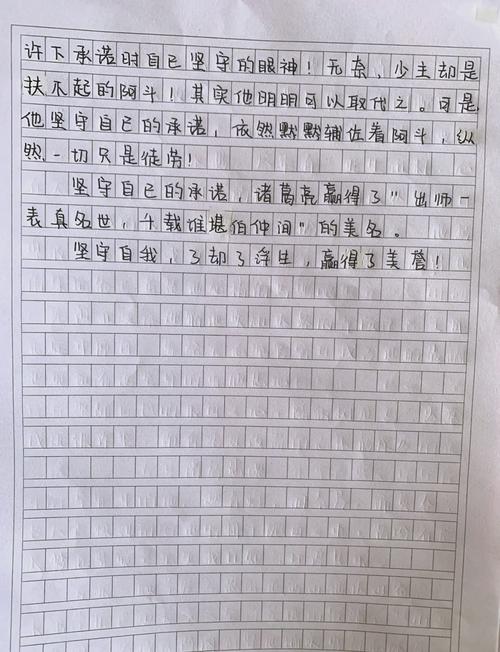 许下承诺时自己坚守的眼神！无奈，少主却是
扶不起的阿斗！其实他明明可以取代之。可是
他坚守自己的承诺，依然默默辅佐着阿斗，纵
然一切只是徒劳！
坚守自己的承诺，诸葛亮赢得了"出师一
表真名世，千载谁堪伯仲间"的美名。
坚守自我，了却了浮生，赢得了美誉！